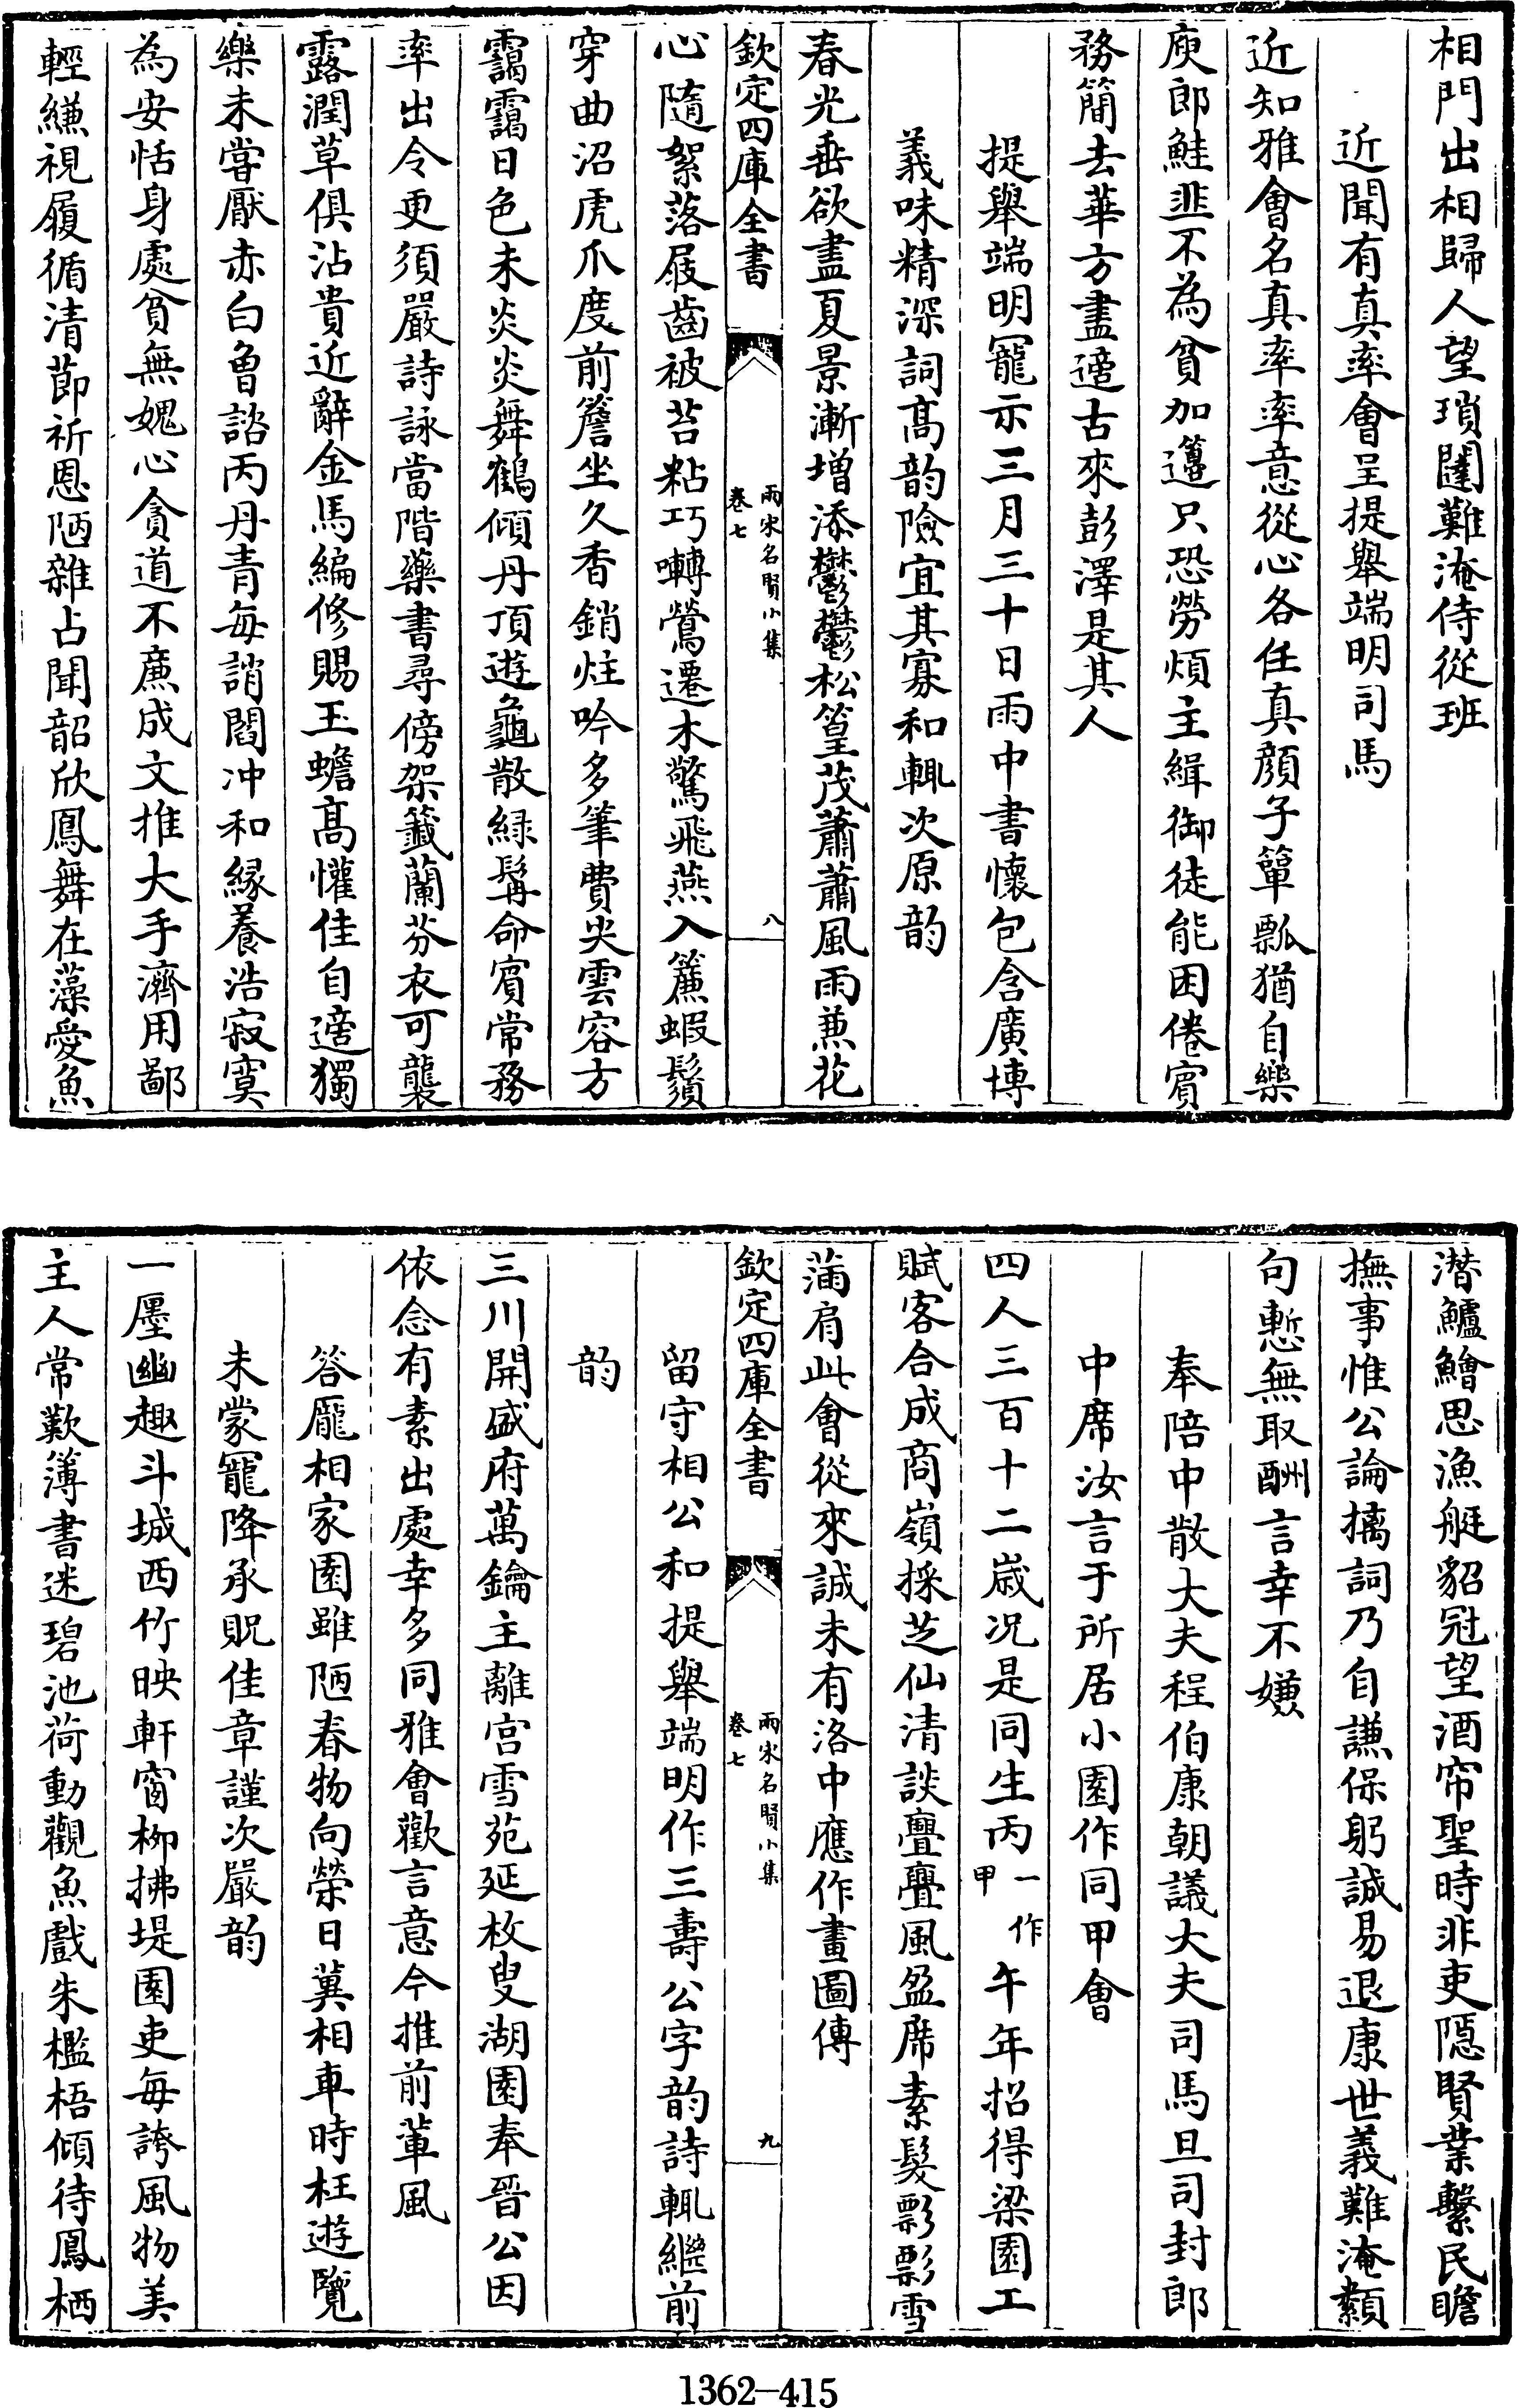 相門出相歸人望瑣闥難淹侍從班
近聞有真率會呈提舉端明司馬
近知雅會名真率率意從心各任真顔子簞瓢猶自樂
庾郎鮭韭不為貧加籩只恐勞煩主緝御徒能困倦賓
務簡去華方盡適古來彭澤是其人
提舉端明寵示三月三十日雨中書懷包含廣博
義味精深詞髙韵險宜其寡和輒次原韵
春光垂欲盡夏景漸增添鬱鬱松篁茂蕭蕭風雨兼花
欽定四庫全書
兩宋名賢小集
卷七
八
心隨絮落屐齒被苔粘巧囀鶯遷木驚飛燕入簾蝦鬚
穿曲沼虎爪度前簷坐久香銷炷吟多筆費尖雲容方
靄靄日色未炎炎舞鶴傾丹頂遊龜散緑髯命賓常務
率出令更須嚴詩詠當階藥書尋傍架籤蘭芬衣可襲
露潤草俱沾貴近辭金馬編修賜玉蟾髙懽佳自適獨
樂未甞厭赤白曾諮丙丹青每誚閻冲和緣養浩寂寞
為安恬身處貧無媿心貪道不廉成文推大手濟用鄙
輕縑視履循清節祈恩陋雜占聞韶欣鳳舞在藻愛魚
潛鱸鱠思漁艇貂冠望酒帘聖時非吏隱賢業繫民瞻
撫事惟公論摛詞乃自謙保躬誠易退康世義難淹纇
句慙無取酬言幸不嫌
奉陪中散大夫程伯康朝議大夫司馬旦司封郎
中席汝言于所居小園作同甲會
四人三百十二歲况是同生丙一作甲午年招得梁園工
賦客合成商嶺採芝仙清談亹亹風盈席素髮飄飄雪
滿肩此會從來誠未有洛中應作畫圖傳
欽定四庫全書
兩宋名賢小集
卷七
九
留守相公和提舉端明作三壽公字韵詩輒繼前
韵
三川開盛府萬鑰主離宫雪苑延枚叟湖園奉晉公因
依念有素出處幸多同雅會歡言意今推前輩風
答龐相家園雖陋春物向榮日冀相車時枉遊覽
未蒙寵降承貺佳章謹次嚴韵
一廛幽趣斗城西竹映軒窗栁拂堤園吏每誇風物美
主人常歎簿書迷碧池荷動觀魚戲朱檻梧傾待鳳栖
1362-415